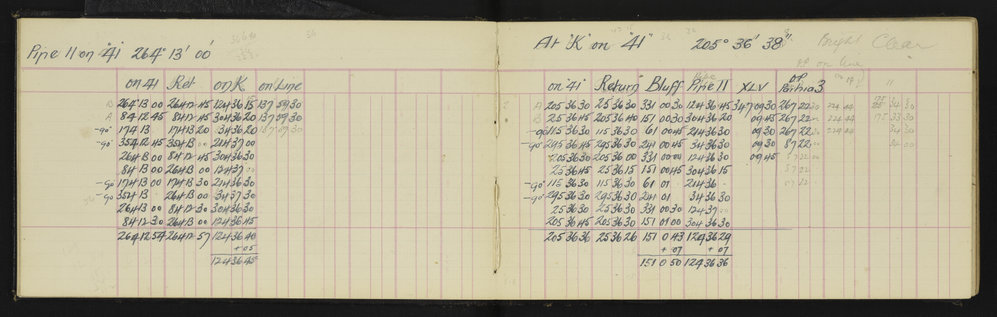 Pipe 11 on "41" 264° 13' 00"
on 41 Ret on K on Line
B 264 13 00 264 12 45 124 36 15 137 09 30
A 84 12 45 84 12 45 304 36 20 137 09 30
-90° 174 13 174 13 20 34 36 20 137 09 30
-90° 354 12 45 354 13 00 214 37 00
264 13 00 84 12 45 304 36 30
84 13 00 264 13 00 124 37 00
-90° 174 13 00 174 13 30 214 36 30
-90° 354 13 354 13 00 34 37 30
264 13 00 84 12 30 304 36 30
84 12 30 264 13 00 124 36 45
264 12 54 264 12 57 124 36 40
+ 05
124 36 45
At "K" on "41" 205° 36' 38" Bright Clear
OP on line
on 41 Return Bluff Pipe 11 XLV OP Portria 3
A 205 36 30 25 36 30 331 00 30 124 36 45 347 09 30 267 22
B 25 36 45 205 36 40 151 00 30 304 36 20 09 45 267 22
-90 115 36 30 115 36 30 61 00 45 214 36 30 09 30 267 22
-90° 295 36 45 295 36 30 241 00 45 34 36 30 09 30 87 22
205 36 30 205 36 00 331 00 00 124 36 30 09 45
25 36 45 25 36 15 151 00 45 304 36 15
-90° 115 36 30 115 36 30 61 01 214 36
-90° 295 36 30 295 36 30 241 01 34 36 30
25 36 30 25 36 30 331 00 30 124 37
205 36 45 205 36 45 151 01 00 304 36 30
205 36 36 25 36 26 151 0 43 124 36 29
+ 07 + 07
151 0 50 124 36 36